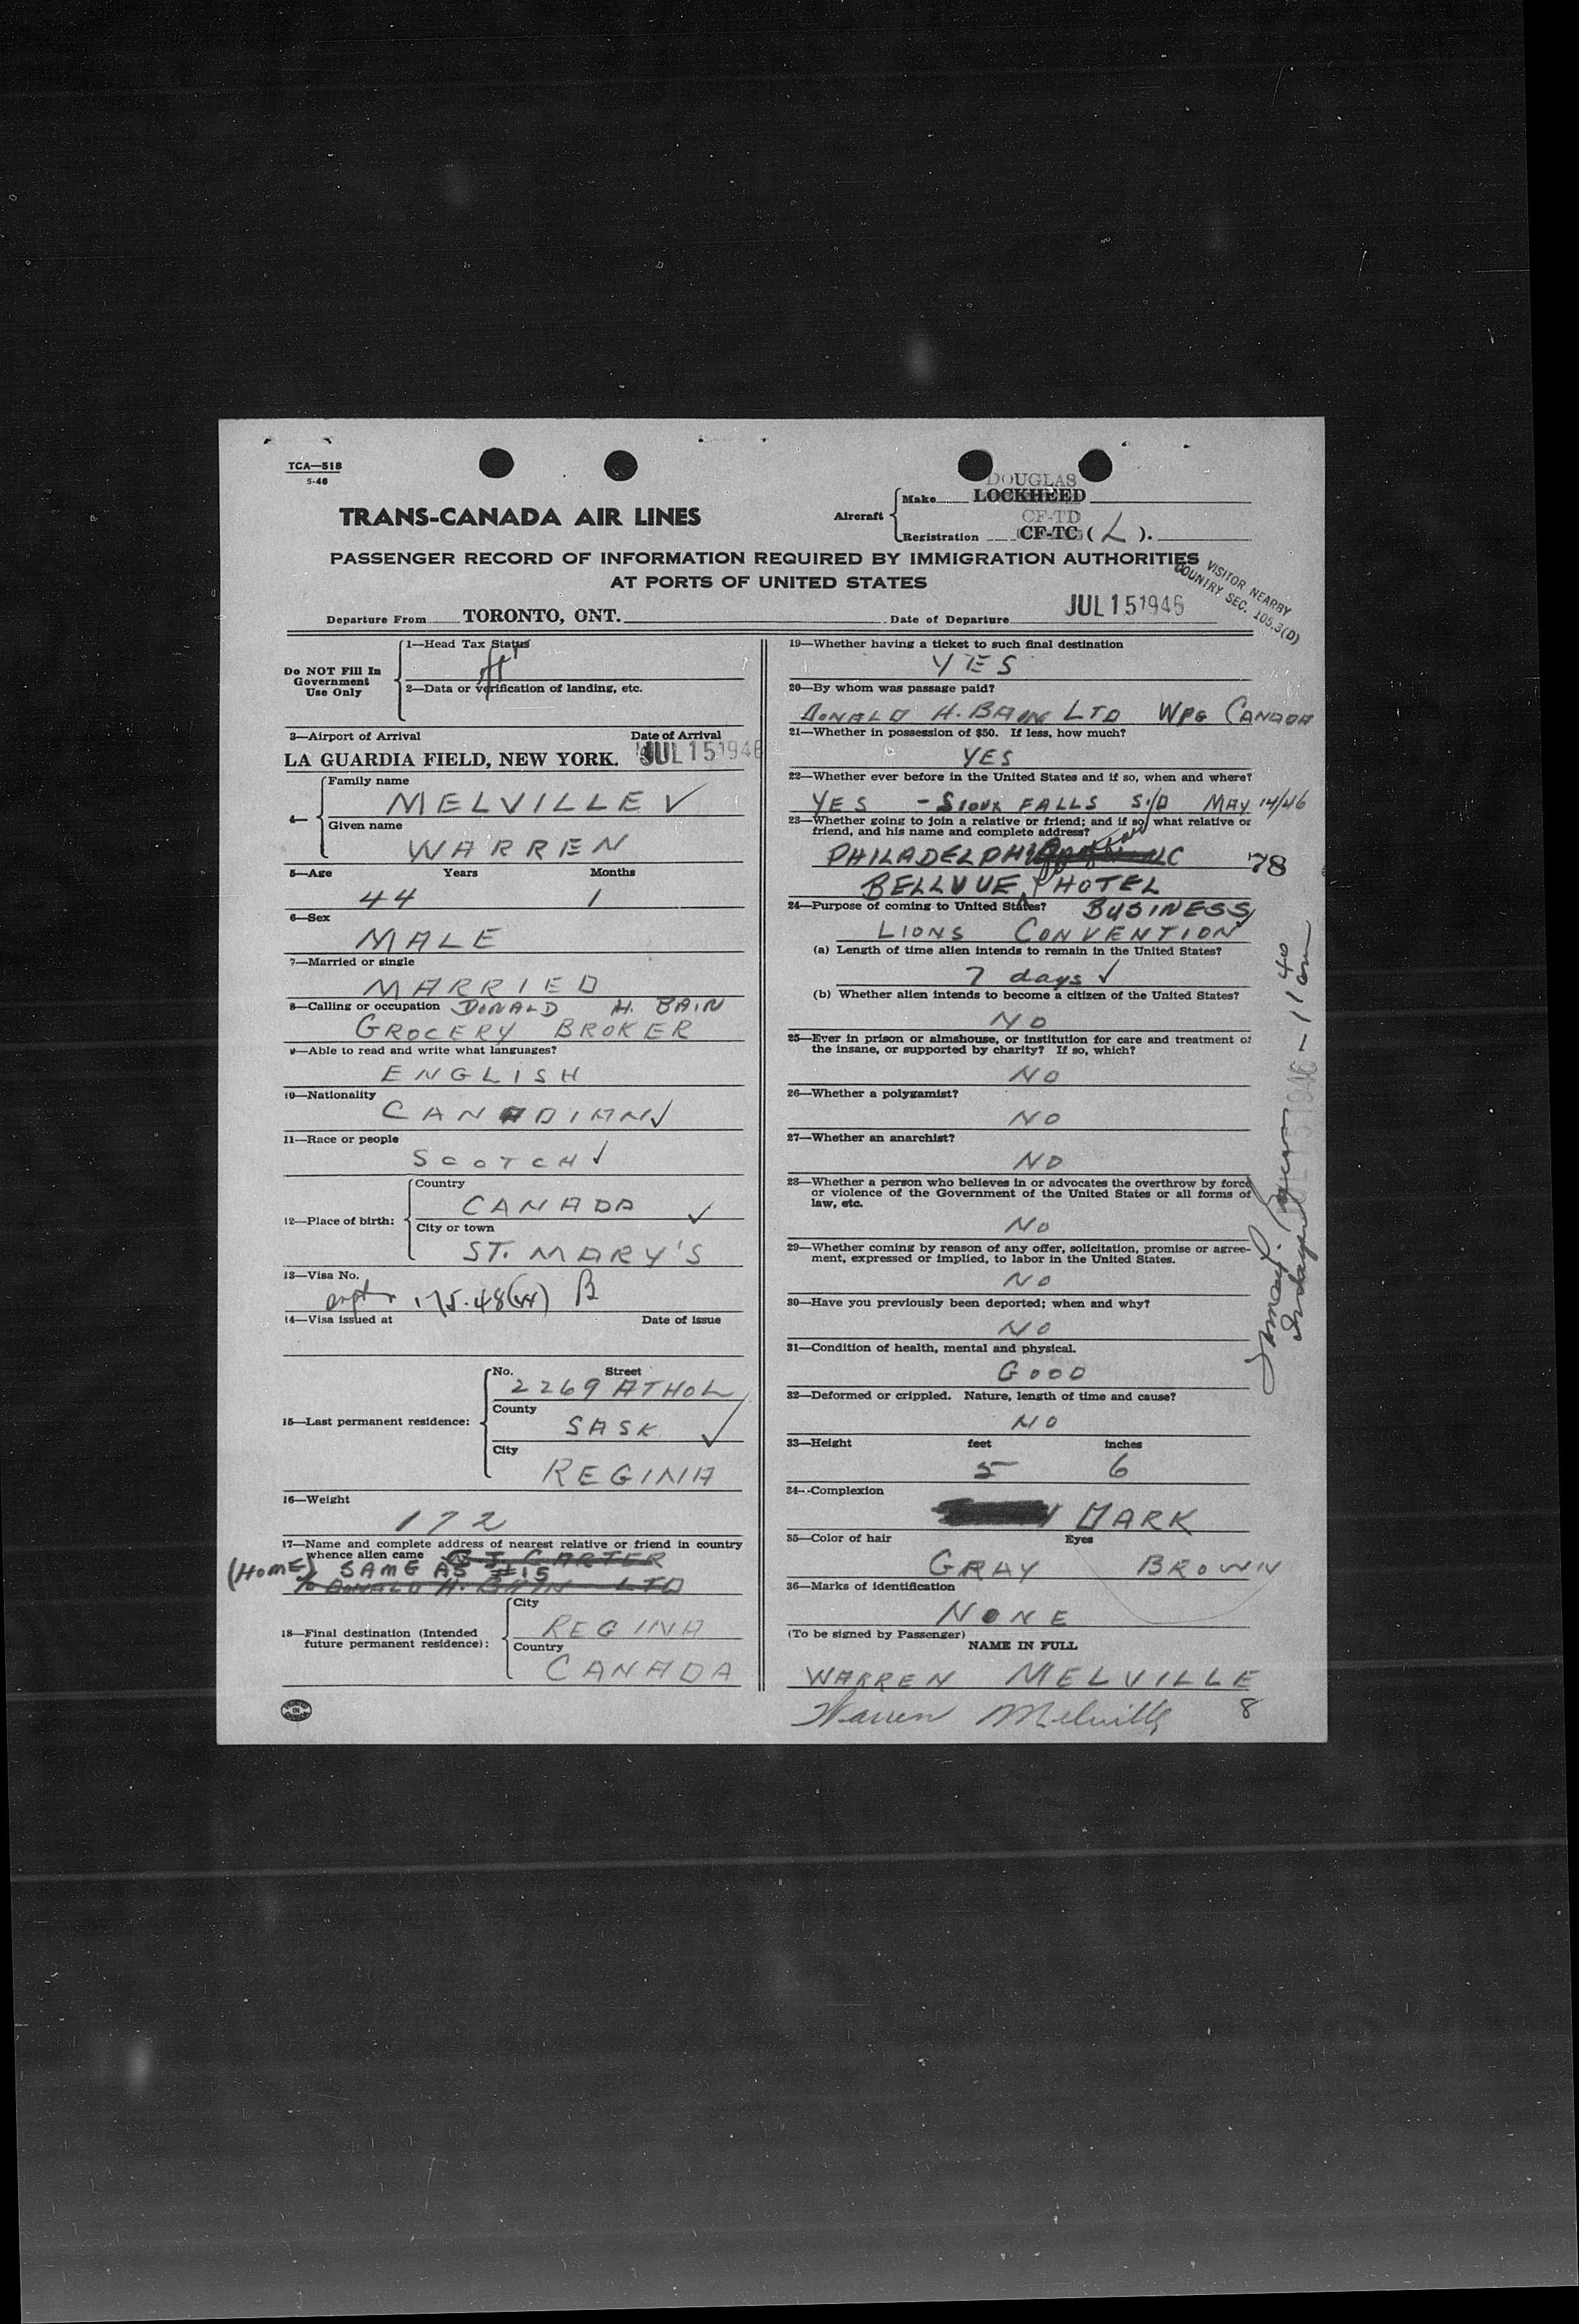 TCA—518
5-46
DOUGLAS
Make LOCKHEED
TRANS-CANADA AIR LINES
Aircraft
CF-TD
Registration CF-TC ( L ).
PASSENGER RECORD OF INFORMATION REQUIRED BY IMMIGRATION AUTHORITIES
AT PORTS OF UNITED STATES
VISITOR NEARBY
COUNTRY SEC. 105.3(D)
Departure From TORONTO, ONT. Date of Departure JUL 15 1946
Do NOT Fill In
Government
Use Only
1—Head Tax Status
2—Data or verification of landing, etc.
3—Airport of Arrival Date of Arrival
LA GUARDIA FIELD, NEW YORK. JUL 15 1946
4—
Family name
MELVILLE ✓
Given name
WARREN
5—Age Years Months
44 1
6—Sex
MALE
7—Married or single
MARRIED
8—Calling or occupation DONALD H. BAIN
GROCERY BROKER
9—Able to read and write what languages?
ENGLISH
10—Nationality
CANADIAN ✓
11—Race or people
SCOTCH ✓
12—Place of birth:
Country
CANADA ✓
City or town
ST. MARY'S
13—Visa No.
175.48 B
14—Visa issued at Date of issue
15—Last permanent residence:
No. Street
2269 ATHOL
County
SASK ✓
City
REGINA
16—Weight
172
17—Name and complete address of nearest relative or friend in country
whence alien came G J. CARTER
(HOME) SAME AS #15
% DONALD H. BAIN LTD
18—Final destination (Intended
future permanent residence):
City
REGINA
Country
CANADA
19—Whether having a ticket to such final destination
YES
20—By whom was passage paid?
DONALD H. BAIN LTD WPG CANADA
21—Whether in possession of $50. If less, how much?
YES
22—Whether ever before in the United States and if so, when and where?
YES - SIOUX FALLS S.D MAY 14/46
23—Whether going to join a relative or friend; and if so, what relative or
friend, and his name and complete address?
PHILADELPHIA
78
BELLVUE HOTEL
24—Purpose of coming to United States? BUSINESS
LIONS CONVENTION
(a) Length of time alien intends to remain in the United States?
7 days ✓
(b) Whether alien intends to become a citizen of the United States?
NO
25—Ever in prison or almshouse, or institution for care and treatment of
the insane, or supported by charity? If so, which?
NO
26—Whether a polygamist?
NO
27—Whether an anarchist?
NO
28—Whether a person who believes in or advocates the overthrow by force
or violence of the Government of the United States or all forms of
law, etc.
NO
29—Whether coming by reason of any offer, solicitation, promise or agree-
ment, expressed or implied, to labor in the United States.
NO
30—Have you previously been deported; when and why?
NO
31—Condition of health, mental and physical.
GOOD
32—Deformed or crippled. Nature, length of time and cause?
NO
33—Height feet inches
5 6
34—Complexion
DARK
35—Color of hair Eyes
GRAY BROWN
36—Marks of identification
NONE
(To be signed by Passenger)
NAME IN FULL
WARREN MELVILLE
Warren Melville
8